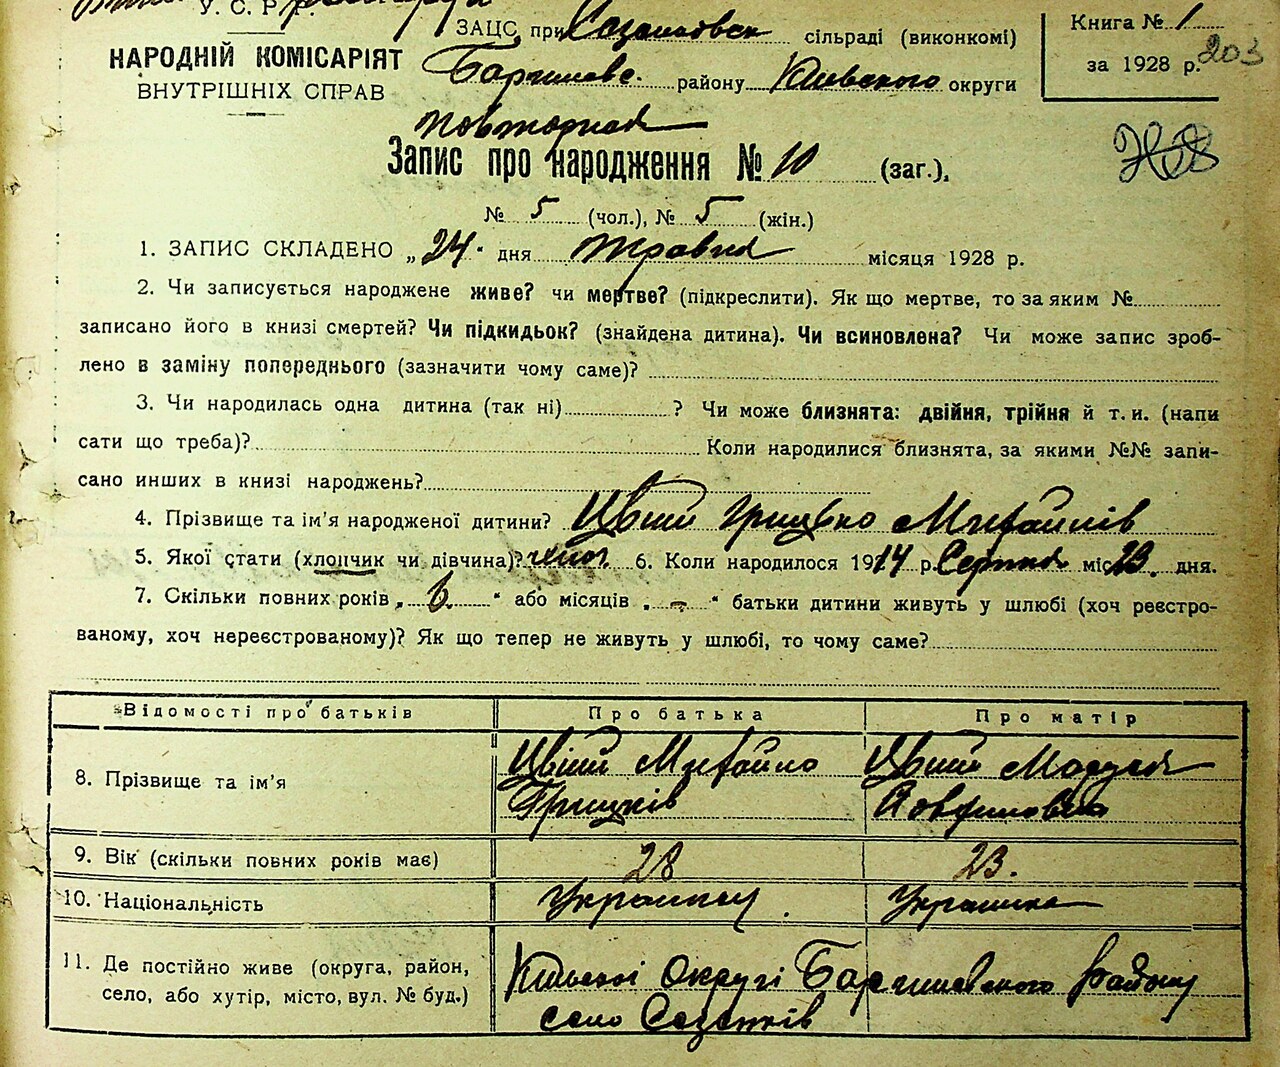 У. С. Р. Р.
НАРОДНІЙ КОМІСАРІЯТ
ВНУТРІШНІХ СПРАВ
ЗАЦС при сільраді (виконкомі)
району Київського округи
Книга № 1
за 1928 р. 203
повторная
Запис про народження № 10 (заг.),
№ 5 (чол.), № 5 (жін.)
1. ЗАПИС СКЛАДЕНО „24" дня травня місяця 1928 р.
2. Чи записується народжене живе? чи мертве? (підкреслити). Як що мертве, то за яким №
записано його в книзі смертей? Чи підкидьок? (знайдена дитина). Чи всиновлена? Чи може запис зроб-
лено в заміну попереднього (зазначити чому саме)?
3. Чи народилась одна дитина (так ні) ? Чи може близнята: двійня, трійня й т. и. (напи
сати що треба)? Коли народилися близнята, за якими №№ запи-
сано инших в книзі народжень?
4. Прізвище та ім'я народженої дитини? Цвіий Грицько Михайлів
5. Якої стати (хлопчик чи дівчина)? 6. Коли народилось 1914 р. Серпня міс. 23. дня.
7. Скільки повних років „ 6. " або місяців „ – " батьки дитини живуть у шлюбі (хоч реєстро-
ваному, хоч нереєстрованому)? Як що тепер не живуть у шлюбі, то чому саме?
Відомості про батьків Про батька Про матір
8. Прізвище та ім'я Цвіий Михайло Цвіий Маруся
Грицьків
9. Вік (скільки повних років має) 28 23.
10. Національність Украинец. Украинка
11. Де постійно живе (округа, район,
село, або хутір, місто, вул. № буд.)
Київської округі Баришевского району
село Сезенків